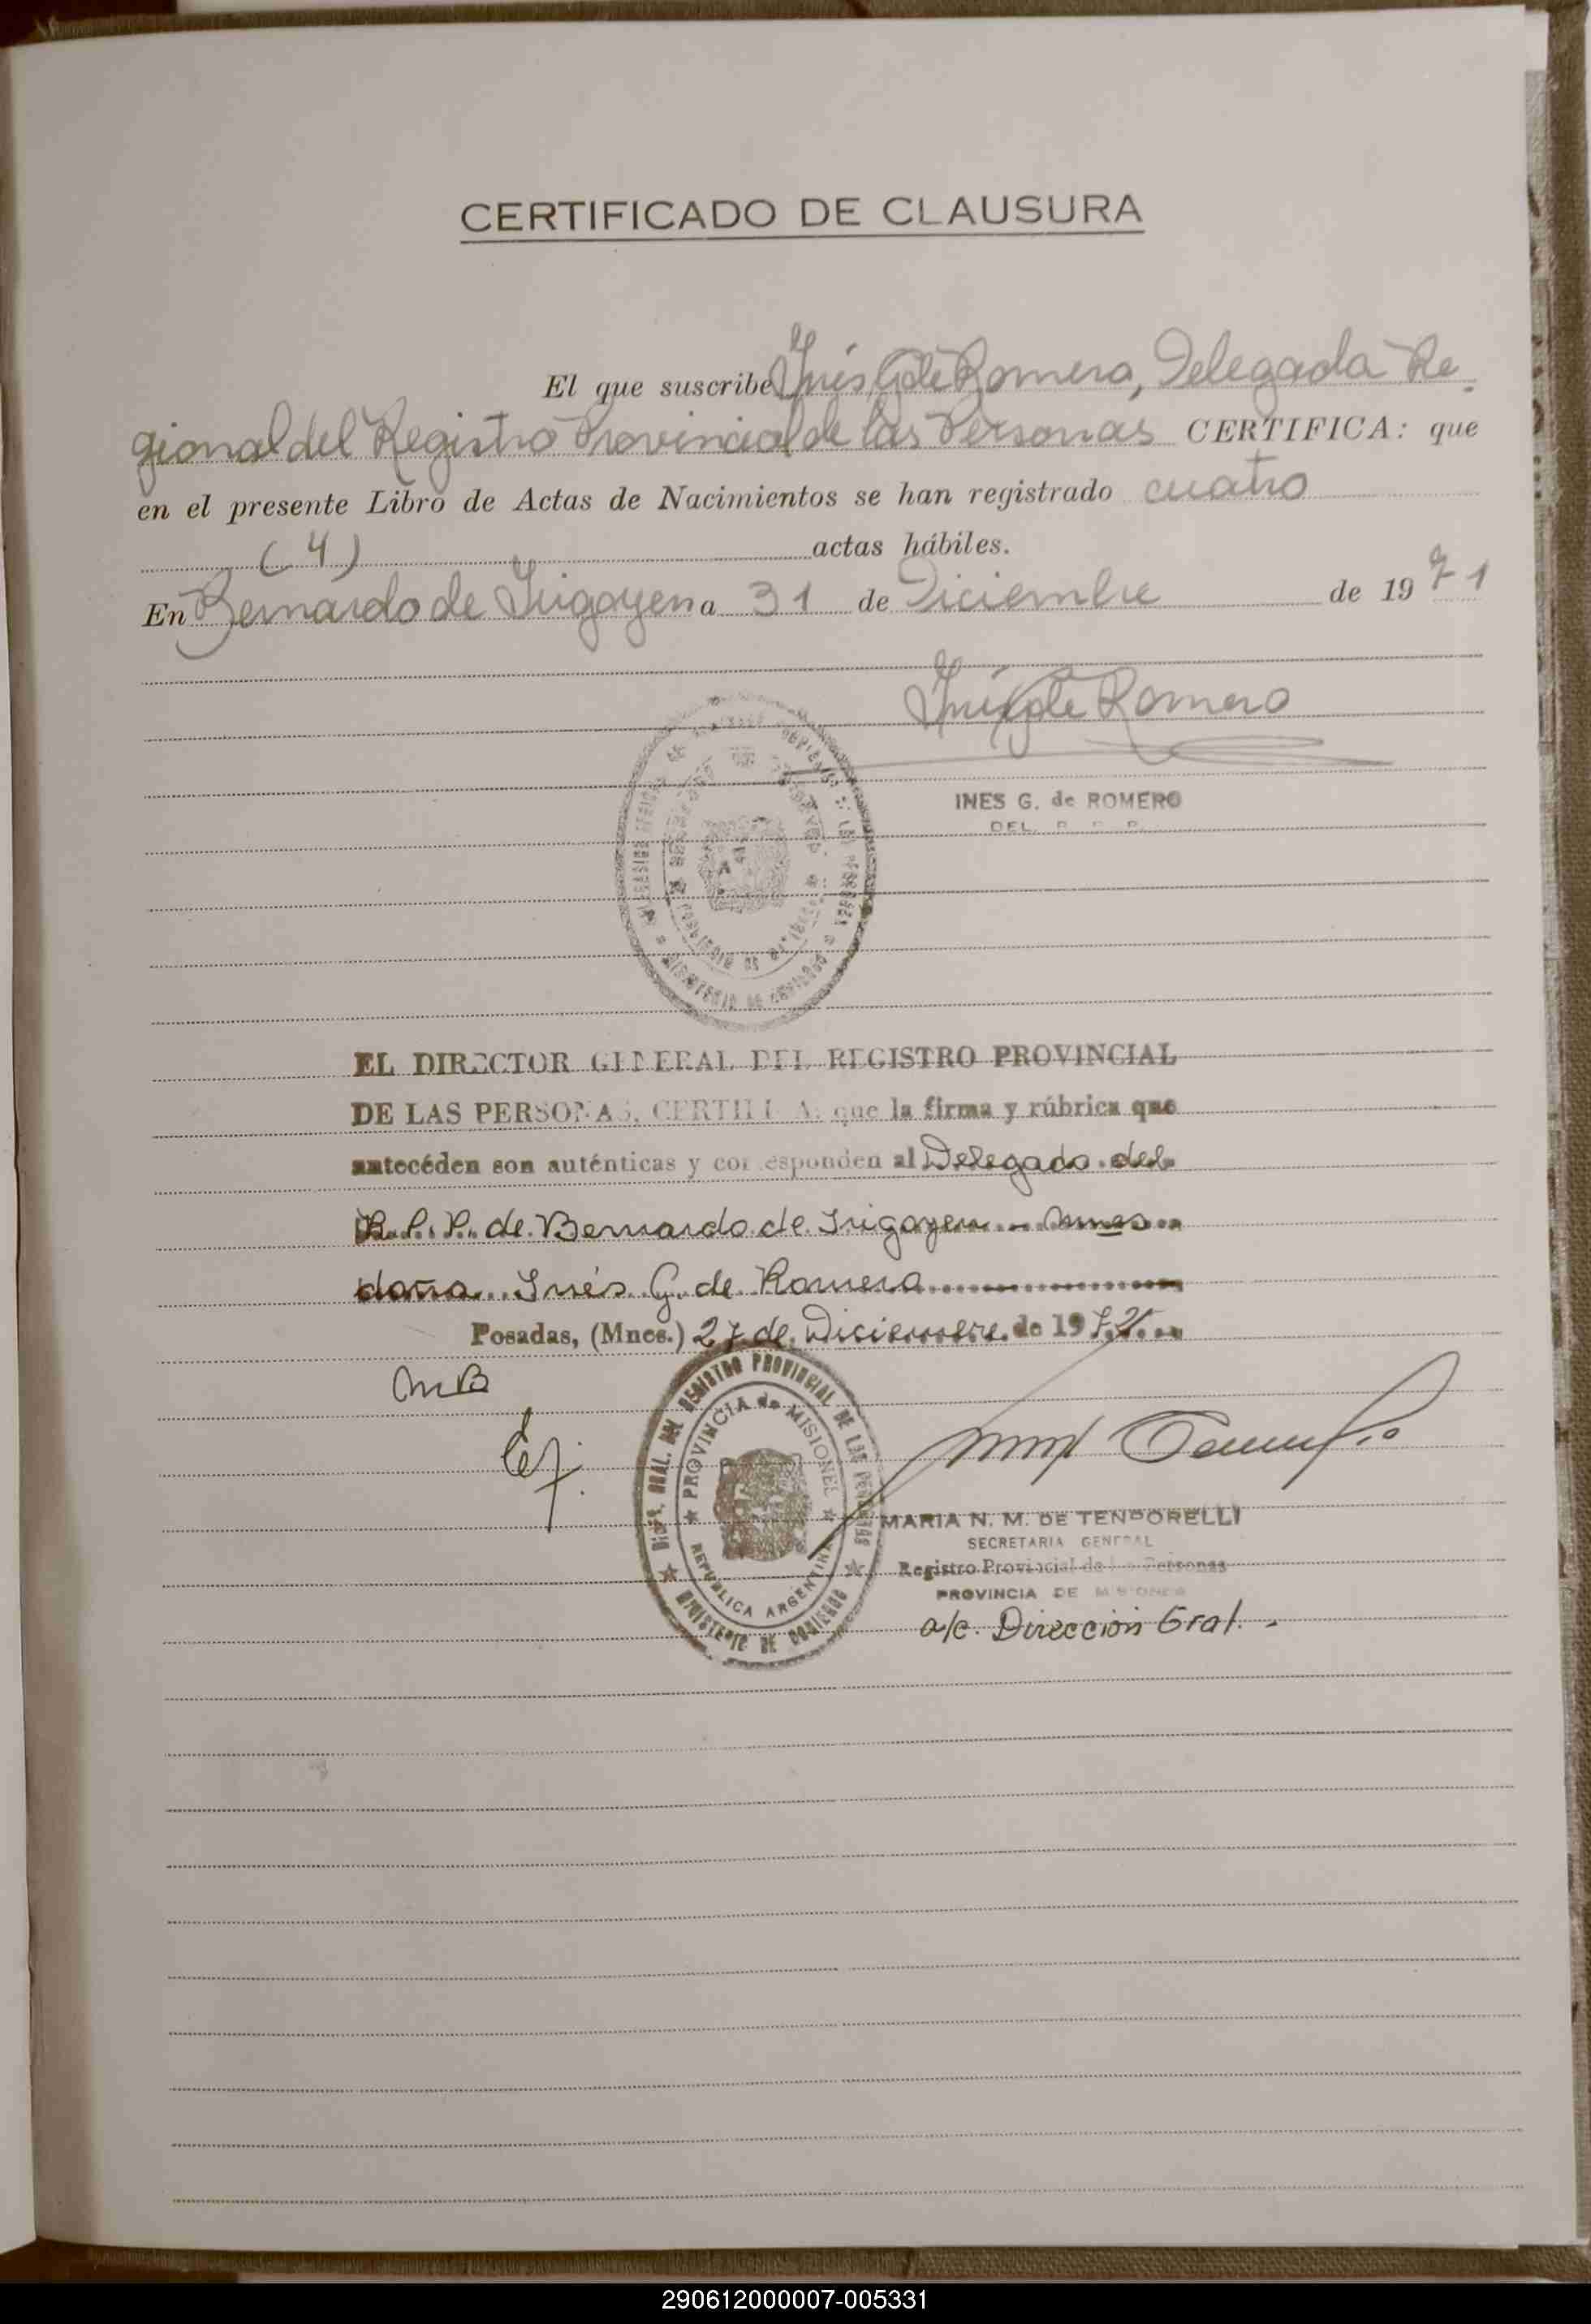 CERTIFICADO DE CLAUSURA
El que suscribe Inés G. de Romero, Delegada Re-
gional del Registro Provincial de las Personas CERTIFICA: que
en el presente Libro de Actas de Nacimientos se han registrado cuatro
(4) actas hábiles.
En Bernardo de Irigoyen a 31 de Diciembre de 1971
Inés G de Romero
INES G. de ROMERO
DEL. R. P. P.
EL DIRECTOR GENERAL DEL REGISTRO PROVINCIAL
DE LAS PERSONAS, CERTIFICA: que la firma y rúbrica que
antecéden son auténticas y corresponden al Delegado del
R. P. P. de Bernardo de Irigoyen - Mnes
doña Inés G. de Romero
Posadas, (Mnes.) 27 de Diciembre de 197
MB
DIRE. GRAL. DEL REGISTRO PROVINCIAL DE LAS PERSONAS
PROVINCIA de MISIONES
REPUBLICA ARGENTINA
MINISTERIO DE GOBIERNO
MARIA N. M. DE TEMPORELLI
SECRETARIA GENERAL
Registro Provincial de las Personas
PROVINCIA DE MISIONES
a/c. Dirección Gral.
290612000007-005331